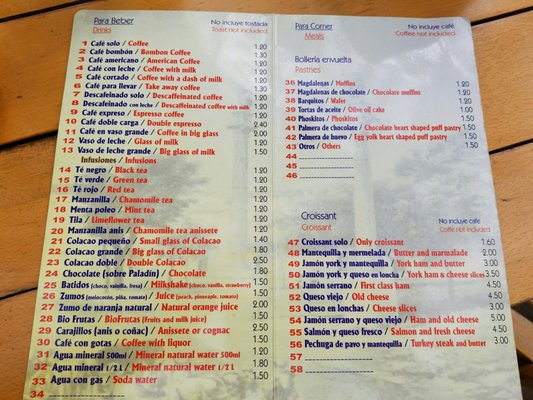 Para Beber No incluye tostada
Drinks Toast not included
1 Café solo / Coffee 1.20
2 Café bombón / Bombon Coffee 1.30
3 Café americano / American Coffee 1.20
4 Café con leche / Coffee with milk 1.20
5 Café cortado / Coffee with a dash of milk 1.20
6 Café para llevar / Take away coffee 1.30
7 Descafeinado solo / Descaffeinated coffee 1.20
8 Descafeinado con leche / Descaffeinated coffee with milk 1.20
9 Café expreso / Espresso coffee 1.20
10 Café doble carga / Double espresso 2.40
11 Café en vaso grande / Coffee in big glass 2.00
12 Vaso de leche / Glass of milk 1.20
13 Vaso de leche grande / Big glass of milk 1.50
Infusiones / Infusions
14 Té negro / Black tea 1.20
15 Té verde / Green tea 1.20
16 Té rojo / Red tea 1.20
17 Manzanilla / Chamomile tea 1.20
18 Menta poleo / Mint tea 1.20
19 Tila / Limeflower tea 1.20
20 Manzanilla anis / Chamomile tea anissete
21 Colacao pequeño / Small glass of Colacao 1.40
22 Colacao grande / Big glass of Colacao 1.80
23 Colacao doble / Double Colacao 2.50
24 Chocolate (sobre Paladín) / Chocolate 1.80
25 Batidos (choco, vainilla, fresa) / Milkshake (choco, vanilla, strawberry) 1.50
26 Zumos (melocotón, piña, tomate) / Juice (peach, pineapple, tomato)
27 Zumo de naranja natural / Natural orange juice 2.00
28 Bio Frutas / BioFrutas (fruits and milk juice) 1.50
29 Carajillos (anis o coñac) / Anissete or cognac
30 Café con gotas / Coffee with liquor 1.50
31 Agua mineral 500ml / Mineral natural water 500ml 1.20
32 Agua mineral 1/2 L / Mineral natural water 1/2 L 1.80
33 Agua con gas / Soda water 1.50
34
Para Comer No incluye café
Meals Coffee not included
Bollería envuelta
Pastries
36 Magdalenas / Muffins 1.20
37 Magdalenas de chocolate / Chocolate muffins 1.50
38 Barquitos / Wafer
39 Tortas de aceite / Olive oil cake
40 Phoskitos / Phoskitos
41 Palmera de chocolate / Chocolate heart shaped puff pastry 1.50
42 Palmera de huevo / Egg yolk heart shaped puff pastry 1.50
43 Otros / Others 1.50
44
45
46
Croissant No incluye café
Croissant Coffe not included
47 Croissant solo / Only croissant 1.60
48 Mantequilla y mermelada / Butter and marmalade 2.00
49 Jamón york y mantequilla / York ham and butter 3.00
50 Jamón york y queso en loncha / York ham & cheese slices 3.50
51 Jamón serrano / First class ham 4.50
52 Queso viejo / Old cheese 4.50
53 Queso en lonchas / Cheese slices 3.00
54 Jamón serrano y queso viejo / Ham and old cheese 5.00
55 Salmón y queso fresco / Salmon and fresh cheese 4.50
56 Pechuga de pavo y mantequilla / Turkey steak and butter 3.00
57
58